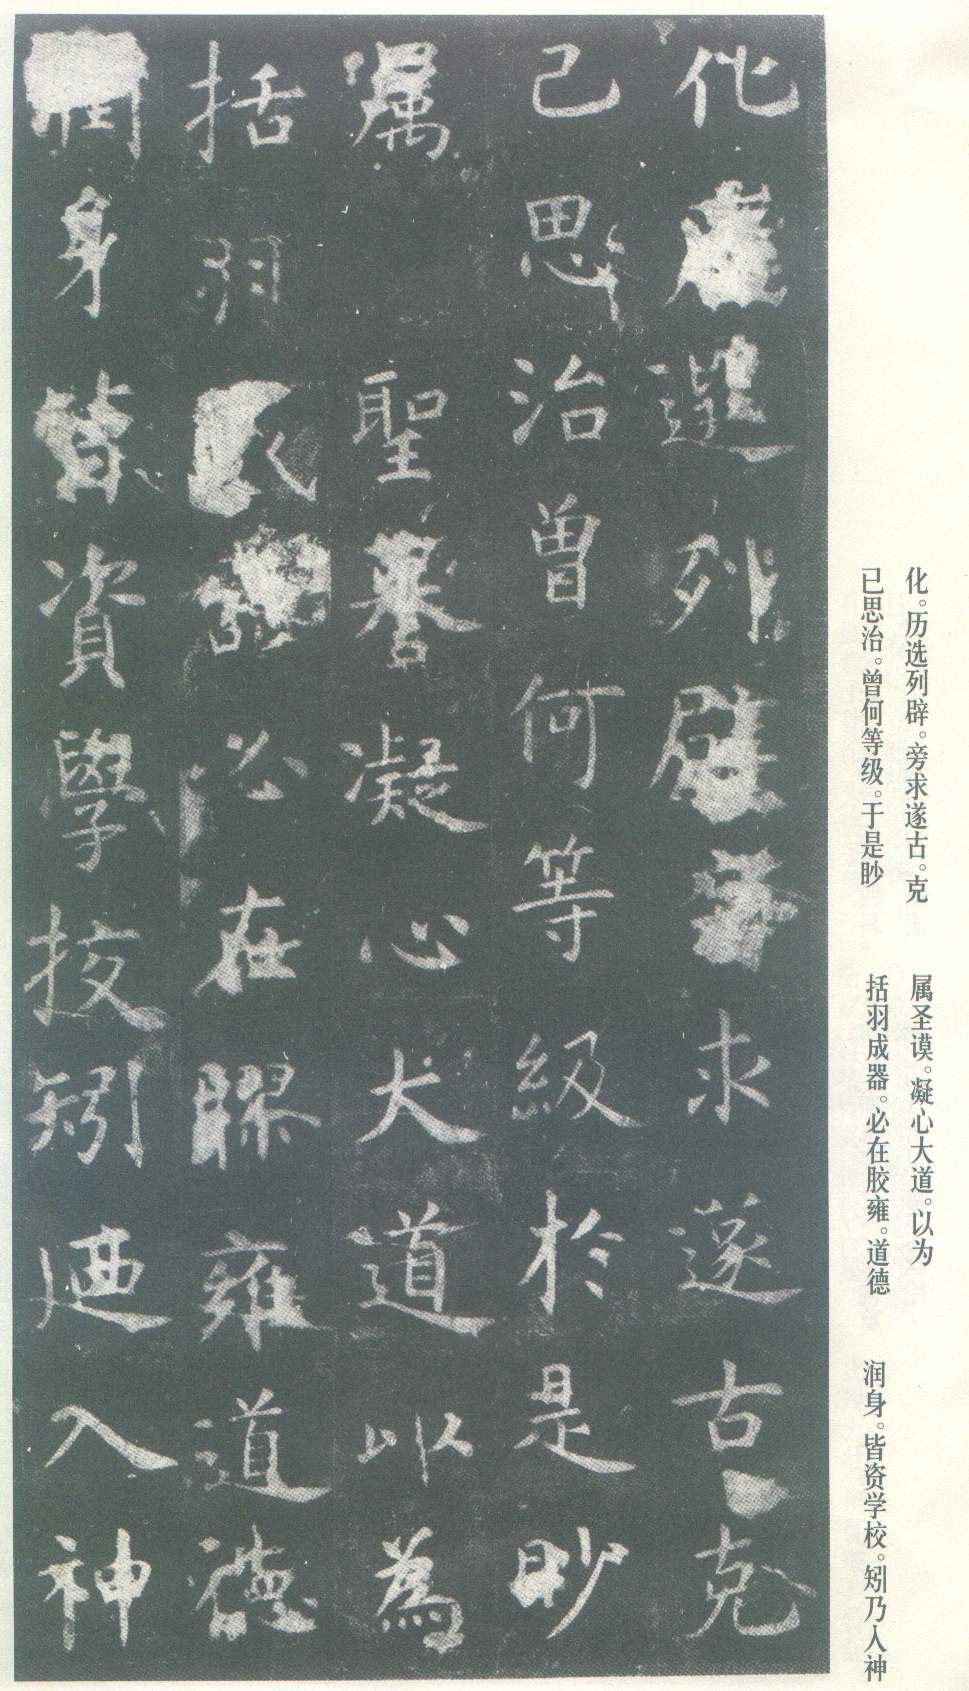 化。历选列辟。旁求遂古。克
已思治。曾何等级。于是眇
属圣谟。凝心大道。以为
括羽成器。必在胶雍。道德
润身。皆资学校。矧乃入神
化歷選列辟旁求遂古克
己思治曾何等級於是眇
屬聖謩凝心大道以為
括羽成器必在膠雍道德
潤身皆資學校矧迺入神